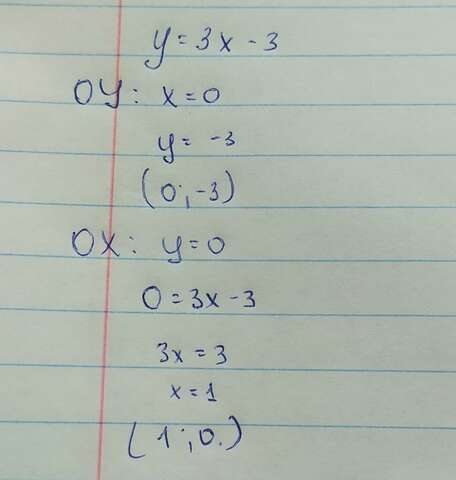 y = 3x - 3
OY: x = 0
y = -3
(0; -3)
OX: y = 0
0 = 3x - 3
3x = 3
x = 1
(1; 0.)